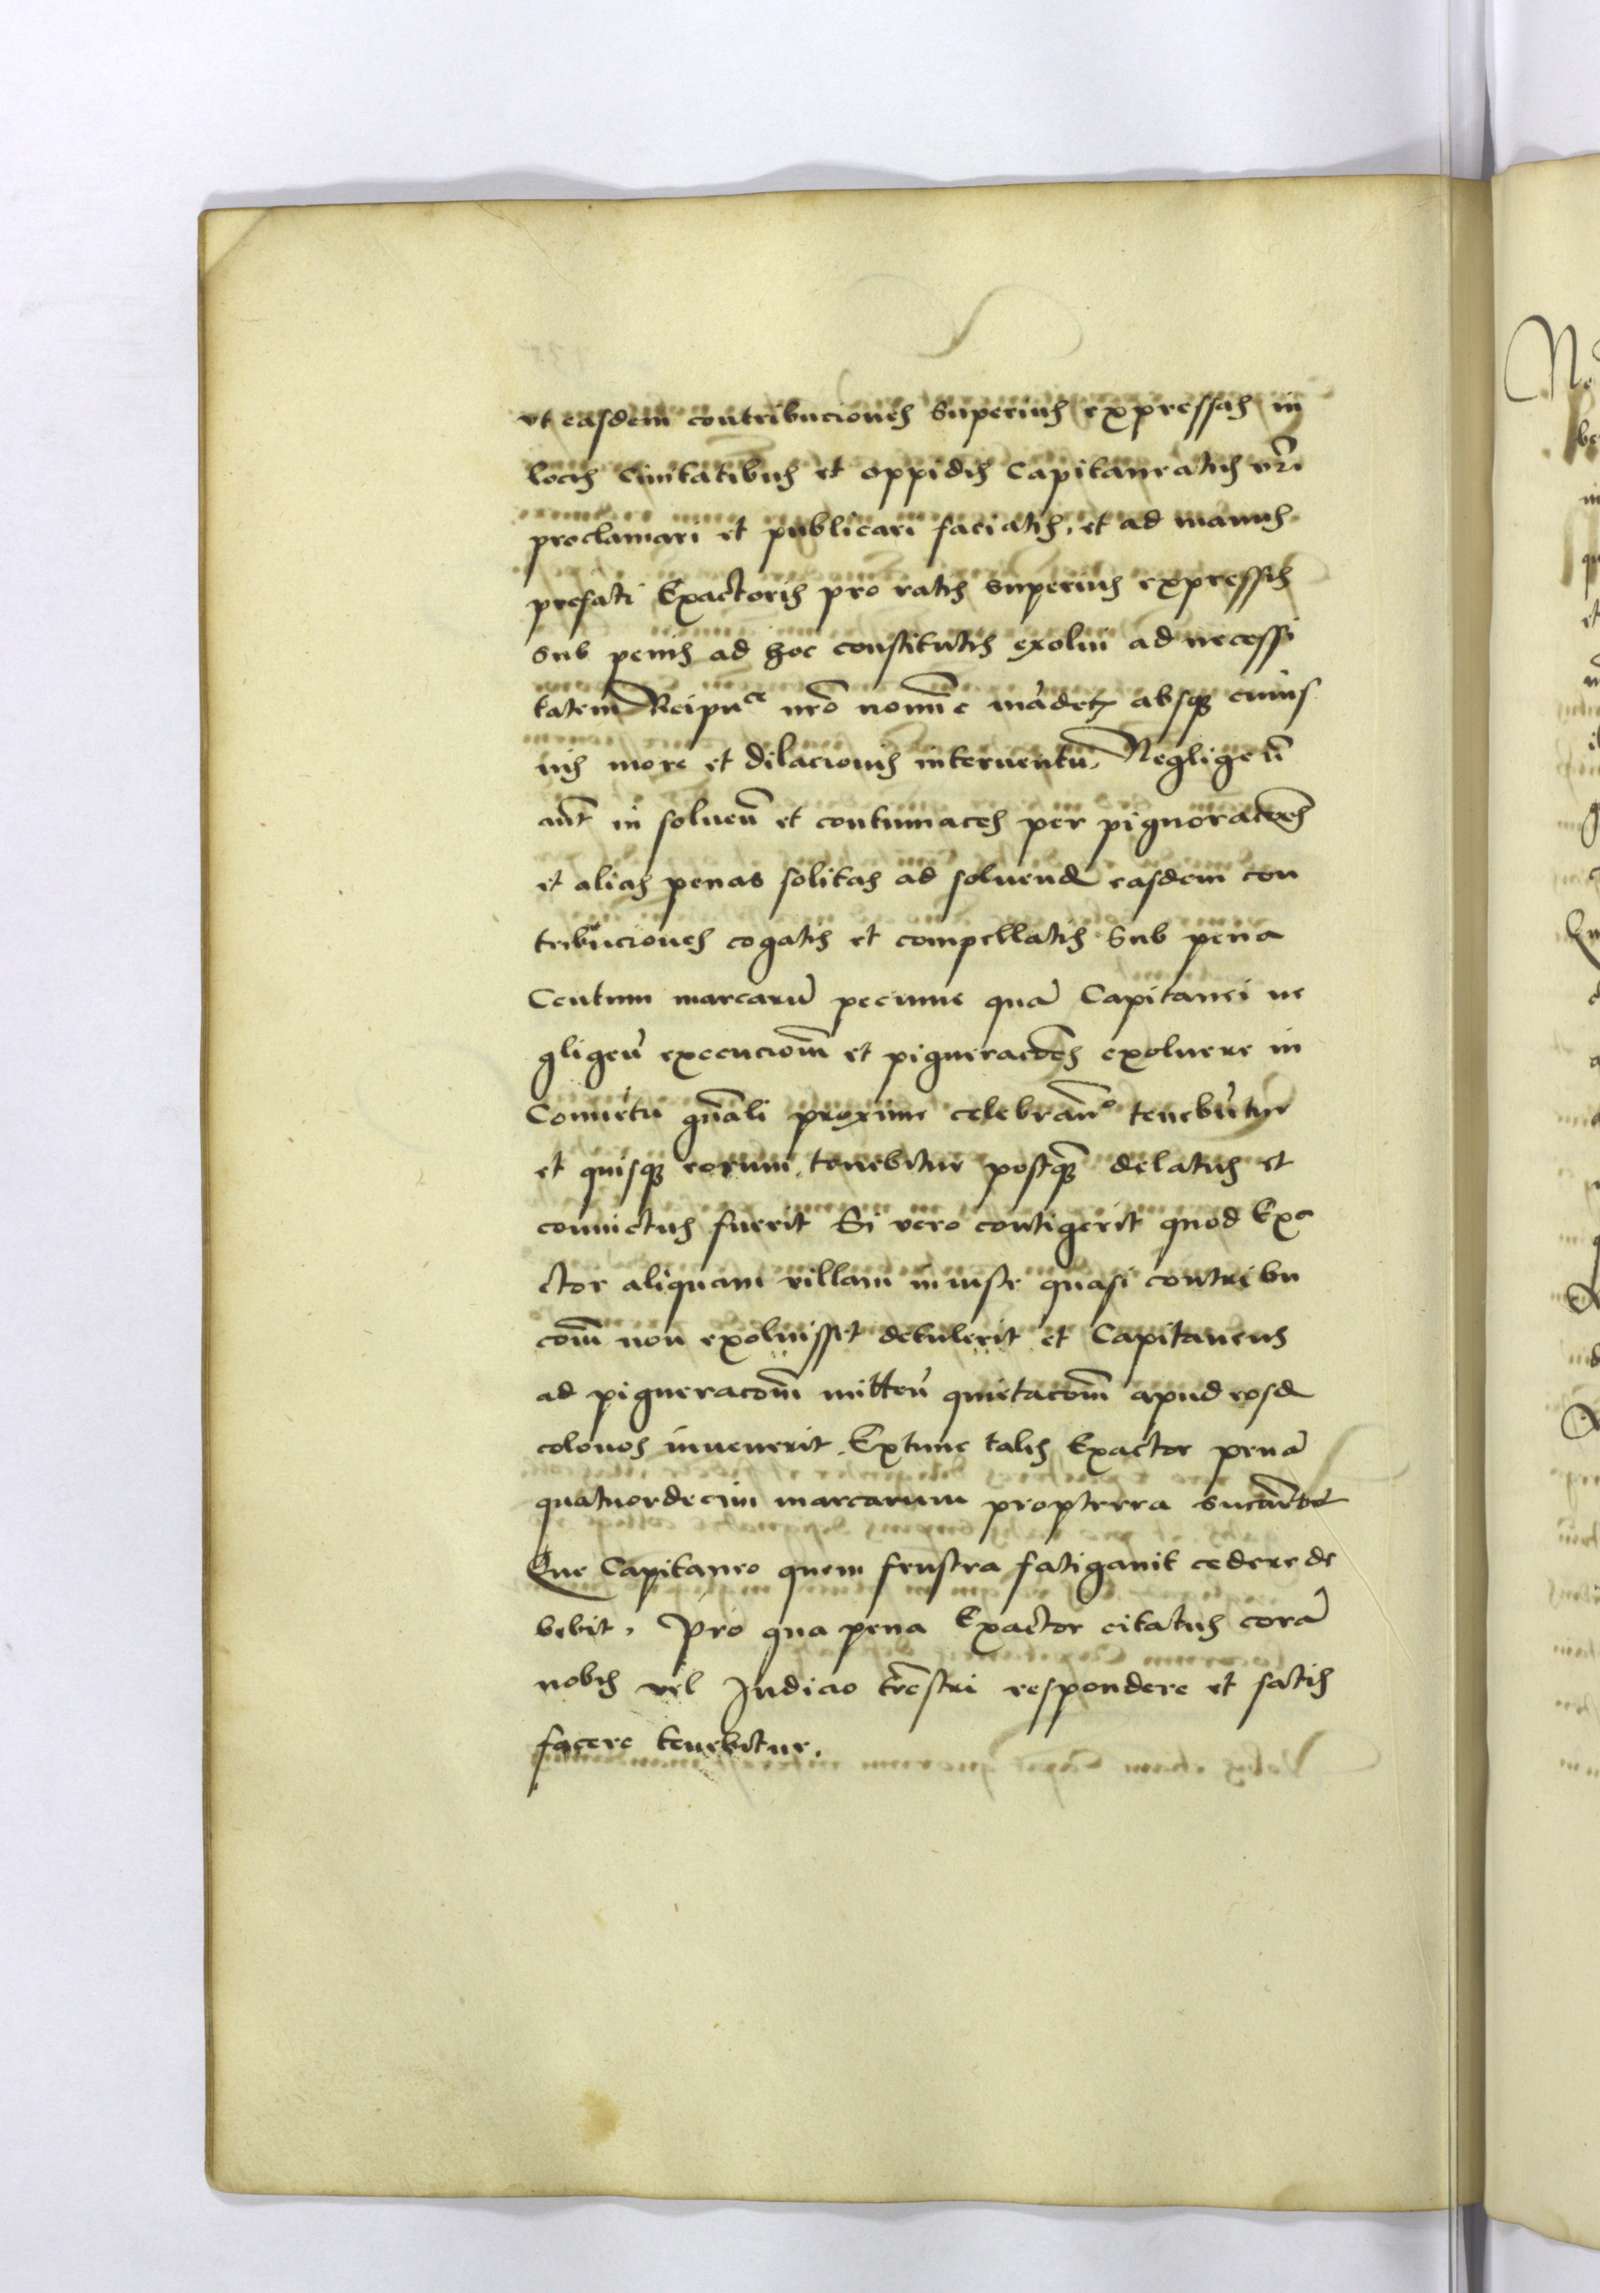 vt easdem contribuciones superius expressas in
locis Ciuitatibus et oppidis Capitaneatus vri
proclamari et publicari faciatis, et ad manus
prefati Exactoris pro ratis superius expressis
sub penis ad hoc constitutis exolui ad necessi
tatem Reipuce nro nomine mādetz absq cuius
uis more et dilacionis interuentu, Negligen̄
aut̄ in soluen̄ et contumaces per pignoracōes
et alias penas solitas ad soluend easdem con
tribuciones cogatis et compellatis Sub pena
Centum marcarū pecunie quā Capitanei ne
gligen̄ execuciōm et pigneracōes exoluere in
Conuētu gn̄ali proxime celebran̄o tenebūtur
et quisq eorum tenebitur postq̄ delatus et
conuictus fuerit Si vero contigerit quod Exa
ctor aliquam villam iniuste quasi contribu
cōm non exoluisset detulerit et Capitaneus
ad pigneracōm mitten̄ quietacōm apud eosd
colonos inuenerit. Extunc talis Exactor penā
quatuordecim marcarum propterea sucūbet
Que Capitaneo quem frustra fatigauit cedere de
bebit. Pro qua pena Exactor citatus corā
nobis vel Iudicio trēstri respondere et satis
facere tenebitur.